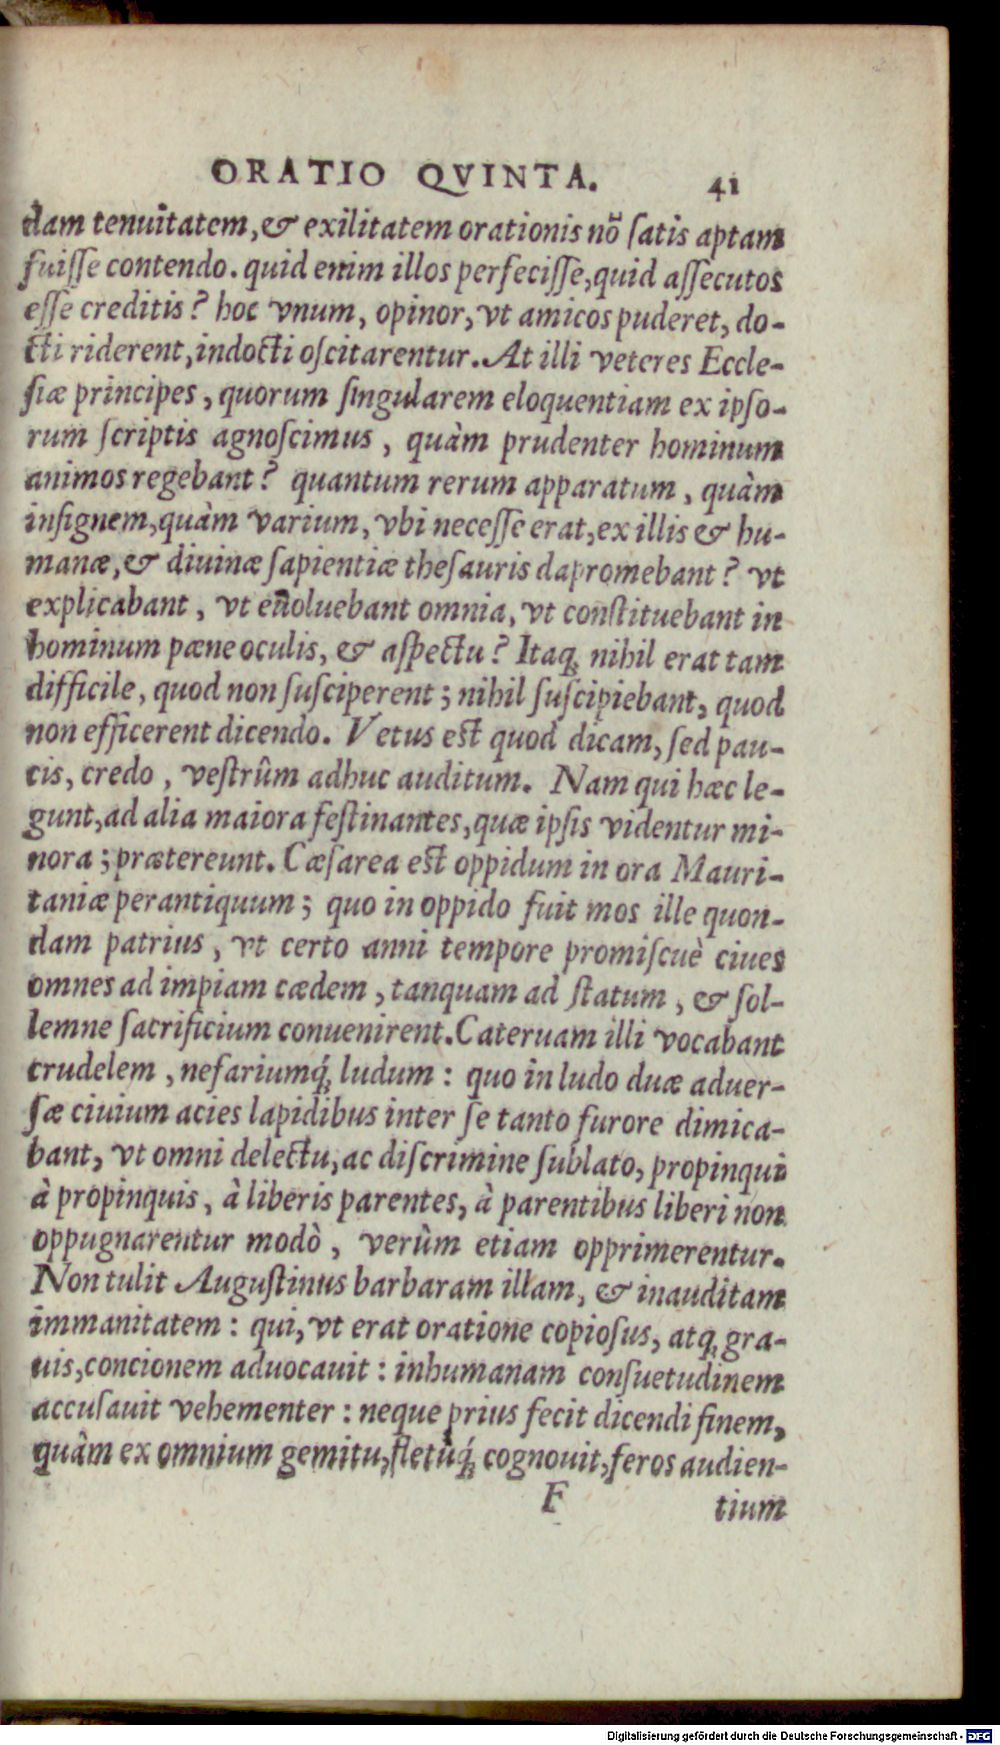 ORATIO QVINTA. 41
dam tenuitatem, & exilitatem orationis nõ ſatis aptam
fuiſſe contendo. quid enim illos perfeciſſe, quid aſſecutos
eſſe creditis? hoc vnum, opinor, vt amicos puderet, do-
cti riderent, indocti oſcitarentur. At illi veteres Eccle-
ſiæ principes, quorum ſingularem eloquentiam ex ipſo-
rum ſcriptis agnoſcimus, quàm prudenter hominum
animos regebant? quantum rerum apparatum, quàm
inſignem, quàm varium, vbi neceſſe erat, ex illis & hu-
manæ, & diuinæ ſapientiæ theſauris dapromebant? vt
explicabant, vt euoluebant omnia, vt conſtituebant in
hominum pæne oculis, & aſpectu? Itaq; nihil erat tam
difficile, quod non ſuſciperent; nihil ſuſcipiebant, quod
non efficerent dicendo. Vetus eſt quod dicam, ſed pau-
cis, credo, veſtrûm adhuc auditum. Nam qui hæc le-
gunt, ad alia maiora feſtinantes, quæ ipſis videntur mi-
nora; prætereunt. Cæſarea eſt oppidum in ora Mauri-
taniæ perantiquum; quo in oppido fuit mos ille quon-
dam patrius, vt certo anni tempore promiſcuè ciues
omnes ad impiam cædem, tanquam ad ſtatum, & ſol-
lemne ſacrificium conuenirent. Cateruam illi vocabant
crudelem, nefariumq́; ludum: quo in ludo duæ aduer-
ſæ ciuium acies lapidibus inter ſe tanto furore dimica-
bant, vt omni delectu, ac diſcrimine ſublato, propinqui
à propinquis, à liberis parentes, à parentibus liberi non
oppugnarentur modò, verùm etiam opprimerentur.
Non tulit Auguſtinus barbaram illam, & inauditam
immanitatem: qui, vt erat oratione copioſus, atq; gra-
uis, concionem aduocauit: inhumanam conſuetudinem
accuſauit vehementer: neque prius fecit dicendi finem,
quàm ex omnium gemitu, fletùq́; cognouit, feros audien-
F tium
Digitalisierung gefördert durch die Deutsche Forschungsgemeinschaft - DFG